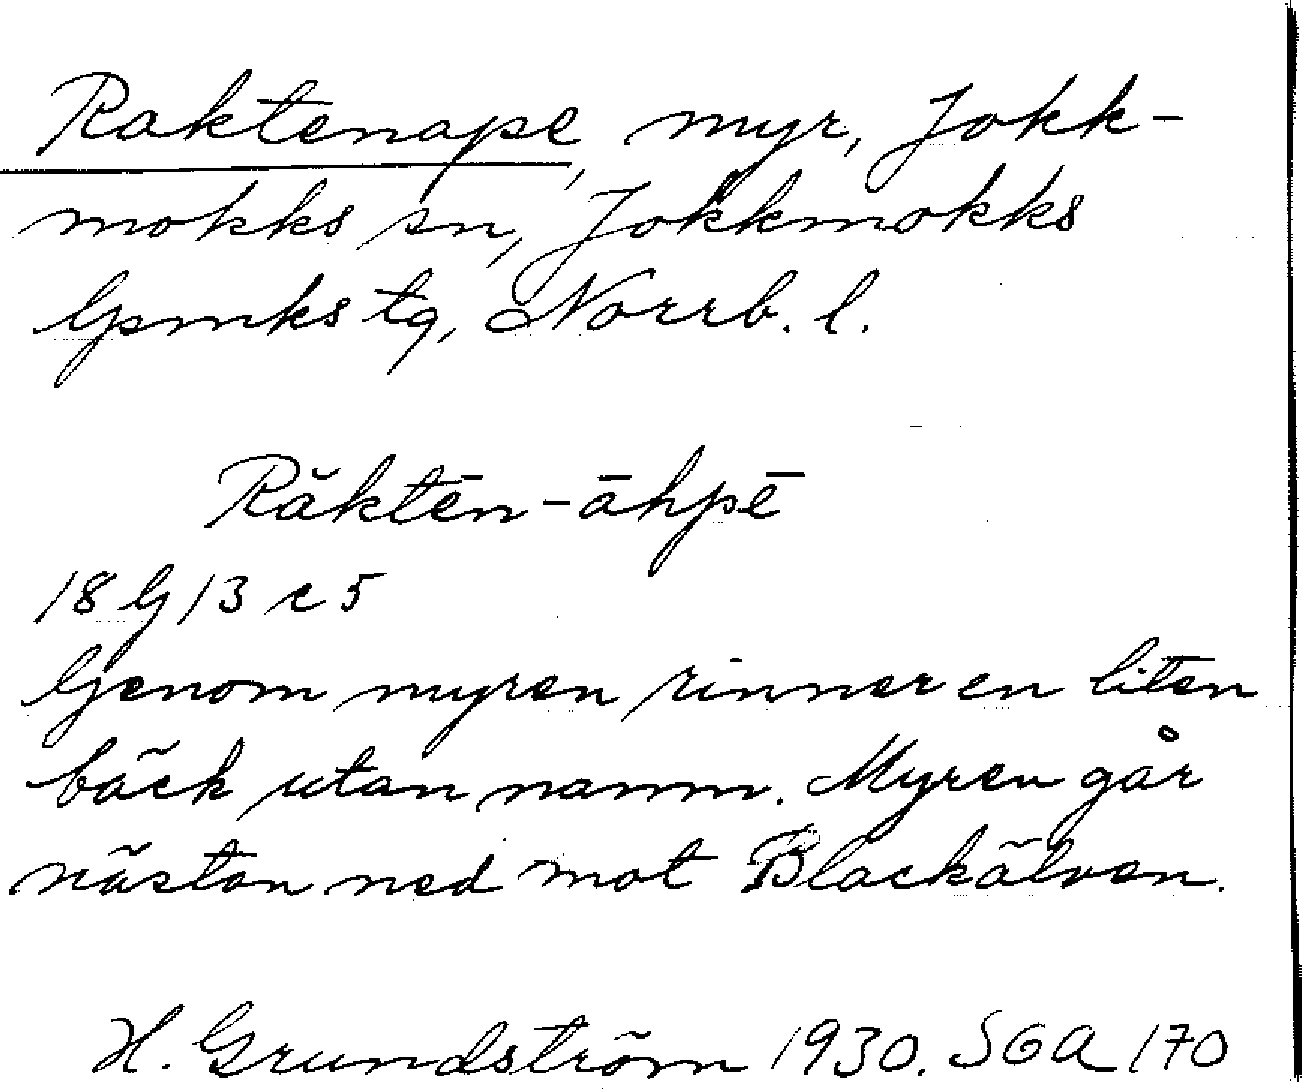 Raktenape, myr, Jokk-
mokks sn, Jokkmokks
lpmks tg, Norrb. l.
Răktēn-āhpē
18 G 13 c 5
Genom myren rinner en liten
bäck utan namn. Myren går
nästan ned mot Blackälven.
H. Grundström 1930. SGA 170